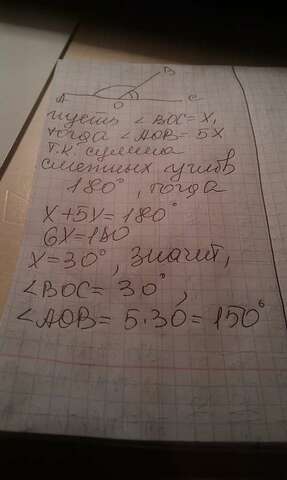 B
A O C
пусть ∠BOC = X,
тогда ∠AOB = 5X
т.к сумма
смежных углов
180°, тогда
X+5X=180°
6X=180
X=30°, значит,
∠BOC = 30°,
∠AOB = 5·30 = 150°